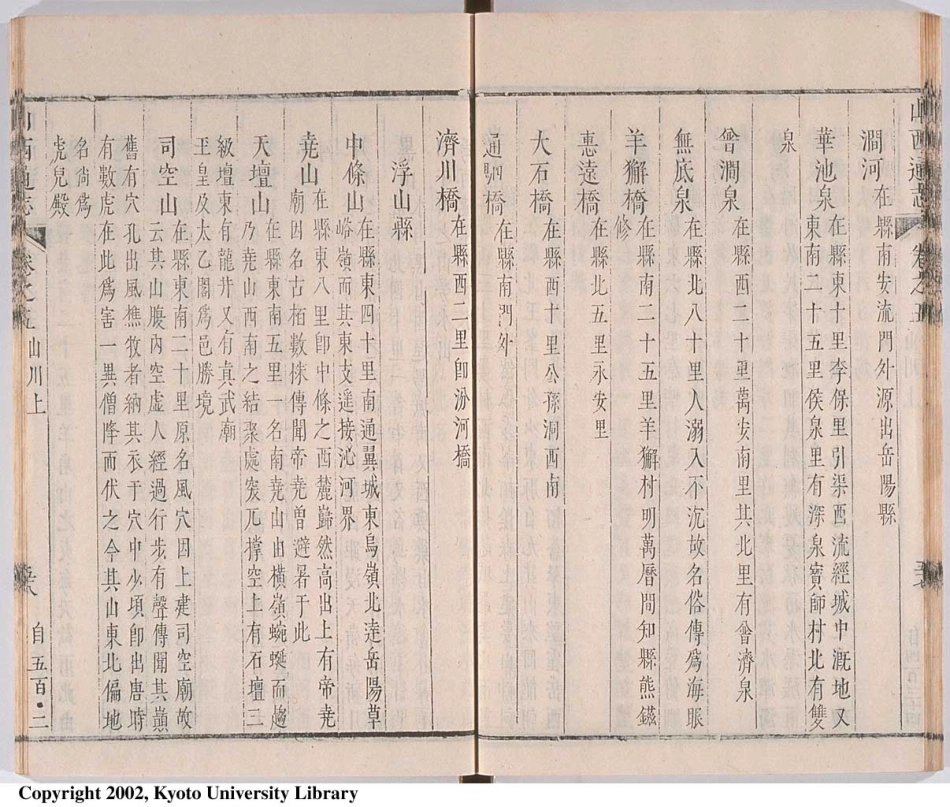 山西通志 卷之五
澗河在縣南安流門外源出岳陽縣
華池泉在縣東十里李保里引渠西流經城中溉地又
東南二十五里侯泉里有深泉竇師村北有雙
泉
曾澗泉在縣西二十里萬安南里其北里有曾濟泉
無底泉在縣北八十里人溺入不沉故名俗傳爲海眼
羊獬橋在縣南二十五里羊獬村明萬曆間知縣熊鑨
修
惠遠橋在縣北五里永安里
大石橋在縣西十里公孫洞西南
通駟橋在縣南門外
濟川橋在縣西二里卽汾河橋
浮山縣
中條山在縣東四十里南通翼城東烏嶺北達岳陽草
峪嶺而其東支遥接沁河界
堯山在縣東八里卽中條之西麓巋然高出上有帝堯
廟因名古栢數株傳聞帝堯曾避暑于此
天壇山在縣東南五里一名南堯山由横嶺蜿蜒而趨
乃堯山西南之結聚處突兀撑空上有石壇三
級壇東有龍井又有真武廟
玉皇及太乙閣爲邑勝境
司空山在縣東南二十里原名風穴因上建司空廟故
云其山腹內空虚人經過行步有聲傳聞其巔
舊有穴孔出風樵牧者納其衣于穴中少頃卽出唐時
有數虎在此爲害一異僧降而伏之今其山東北偏地
名尙爲
虎兒殿
山西通志 卷之五 山川上
自五百·二